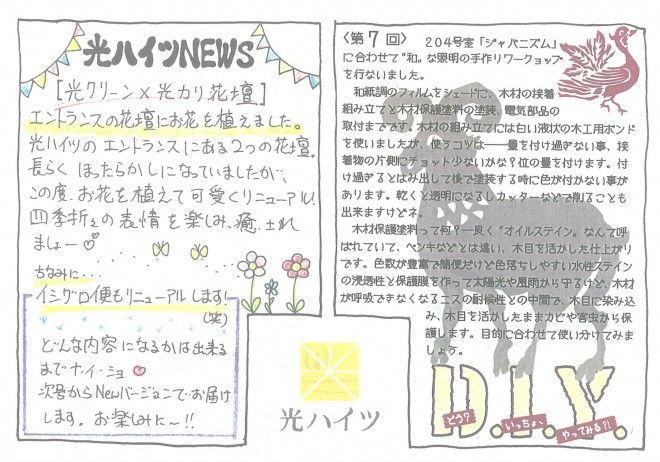 光ハイツNEWS
[光クリーン×光カリ花壇]
エントランスの花壇にお花を植えました。
光ハイツのエントランスにある2つの花壇。
長らくほったらかしになっていましたが、
この度、お花を植えて可愛くリニューアル。
四季折々の表情を楽しみ、癒され
ましょー♡
ちなみに...
イシグロ便もリニューアルします!
(笑)
どんな内容になるかは出来る
までナ・イ・ショ
次号からNewバージョンでお届け
します。お楽しみに〜!!
光ハイツ
〈第7回〉 204号室「ジャパニズム」
に合わせて“和”な照明の手作りワークショップ
を行ないました。
和紙調のフィルムをシェードに、木材の接着
組み立てと木材保護塗料の塗装、電気部品の
取付までです。木材の組み立てには白い液状の木工用ボンド
を使いましたが、使うコツは――量を付け過ぎない事、接
着物の片側にチョット少ないかな?位の量を付けます。付
け過ぎるとはみ出して後で塗装する時に色が付かない事が
あります。乾くと透明になるしカッターなどで削ることも
出来ますけどネ。
木材保護塗料って何?一良く“オイルステイン”なんて呼
ばれていて、ペンキなどとは違い、木目を活かした仕上がり
です。色数が豊富で簡便だけど色落ちしやすい水性ステイン
の浸透性と保護膜を作って太陽光や風雨から守るけど、木材
が呼吸できなくなるニスの耐候性との中間で、木目に染み込
み、木目を活かしたままカビや害虫から保
護します。目的に合わせて使い分けてみま
しょう。
D.I.Y.
どう?
いっちょ、
やってみる?!